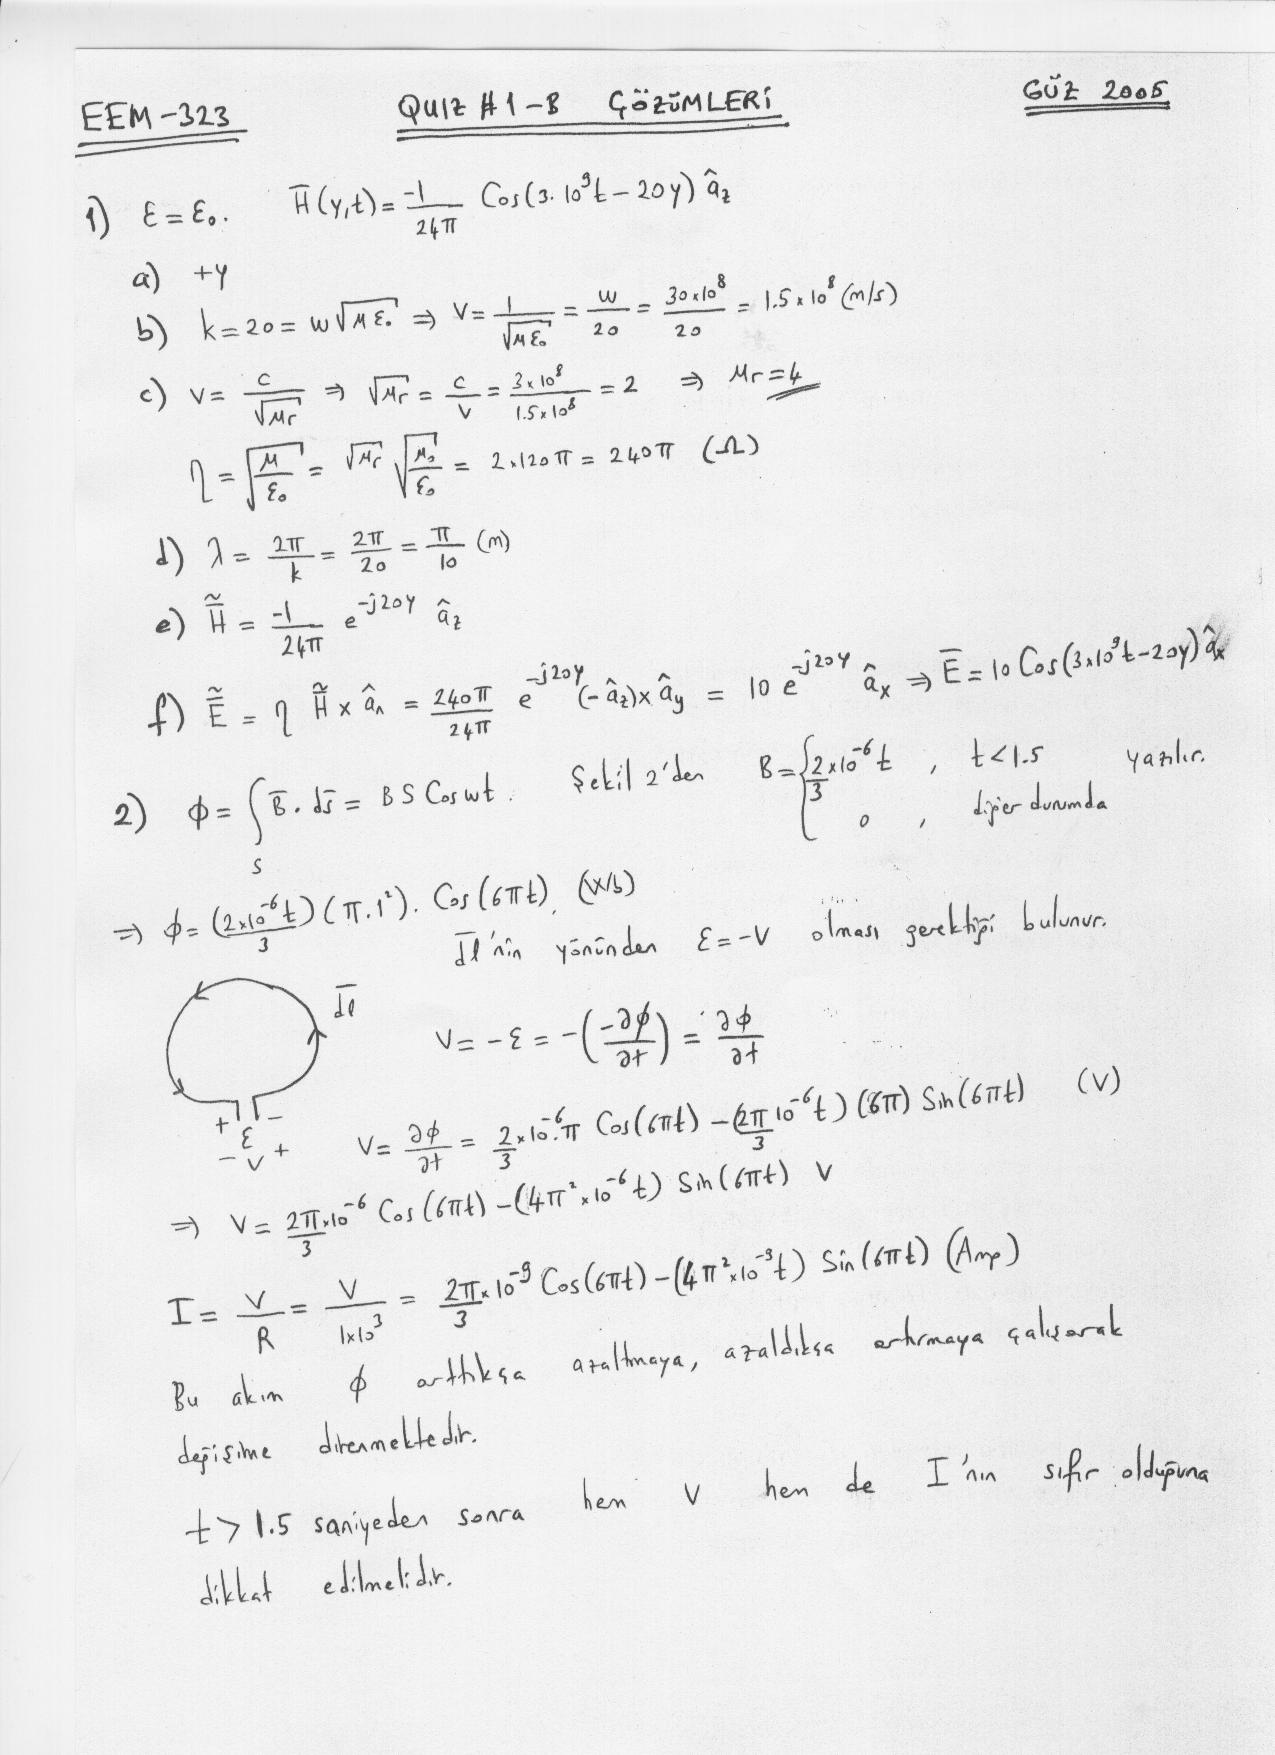 EEM-323 QUIZ #1-B ÇÖZÜMLERİ GÜZ 2005
1) ε = ε₀. H̄(y,t) = -1/24π Cos(3.10⁹t - 20y) â_z
a) +y
b) k = 20 = w√(με₀) ⇒ V = 1/√(με₀) = w/20 = 30x10⁸/20 = 1.5x10⁸ (m/s)
c) V = c/√μr ⇒ √μr = c/V = 3x10⁸/1.5x10⁸ = 2 ⇒ μr = 4
η = √(μ/ε₀) = √μr √(μ₀/ε₀) = 2x120π = 240π (Ω)
d) λ = 2π/k = 2π/20 = π/10 (m)
e) H̃ = -1/24π e^(-j20y) â_z
f) Ẽ = η H̃ x â_n = 240π/24π e^(-j20y) (-â_z) x â_y = 10 e^(-j20y) â_x ⇒ Ē = 10 Cos(3x10⁹t - 20y) â_x
2) ϕ = ∫_S B̄. ds̄ = BS Cos wt. Şekil 2'den B = { 2/3 x10⁻⁶t , t<1.5 yazılır.
0 , diğer durumda
⇒ ϕ = (2x10⁻⁶t/3) (π.1²). Cos(6πt). (Wb)
dl̄'nin yönünden ε = -V olması gerektiği bulunur.
dl̄
V = -ε = -(-∂ϕ/∂t) = ∂ϕ/∂t
+ ε -
- V +
V = ∂ϕ/∂t = 2/3 x10⁻⁶.π Cos(6πt) - (2π/3 10⁻⁶t) (6π) Sin(6πt) (V)
⇒ V = 2π/3 x10⁻⁶ Cos(6πt) - (4π²x10⁻⁶t) Sin(6πt) V
I = V/R = V/1x10³ = 2π/3 x10⁻⁹ Cos(6πt) - (4π²x10⁻⁹t) Sin(6πt) (Amp)
Bu akım ϕ arttıkça azaltmaya, azaldıkça artırmaya çalışarak
değişime direnmektedir.
t > 1.5 saniyeden sonra hem V hem de I'nın sıfır olduğuna
dikkat edilmelidir.